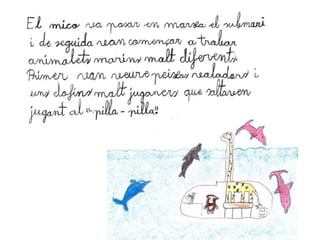 El mico va posar en marxa el submarí
i de seguida van començar a trobar
animalets marins malt diferents.
Primer van veure peixos voladors i
uns dofins malt juganers que saltaven
jugant al "pilla-pilla".